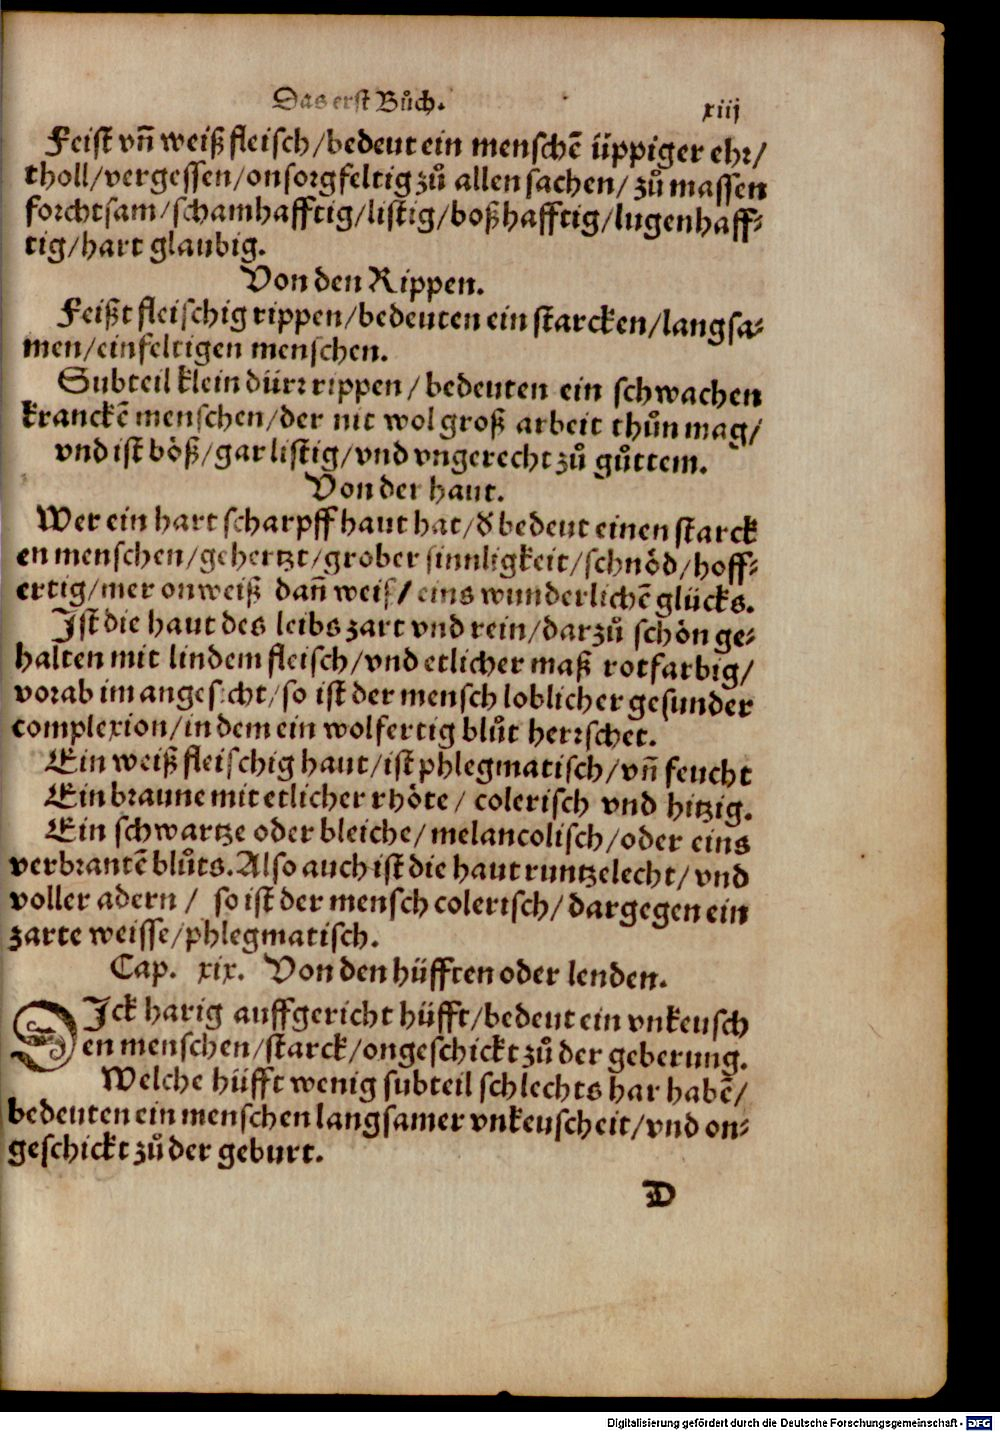 Das erst Bůch. xiij
Feist vn̄ weiß fleisch/bedeut ein menschē üppiger ehr/
tholl/vergessen/onsorgfeltig zů allen sachen/ zů massen
forchtsam/schamhafftig/listig/boßhafftig/lugenhaff⸗
tig/hart glaubig.
Von den Rippen.
Feißt fleischig rippen/bedeuten ein starcken/langsa⸗
men/einfeltigen menschen.
Subteil klein dürr rippen/ bedeuten ein schwachen
kranckē menschen/der nit wol groß arbeit thůn mag/
vnd ist böß/gar listig/vnd vngerecht zů gůttem.
Von der haut.
Wer ein hart scharpff haut hat/d̕ bedeut einen starck
en menschen/gehertzt/grober sinnligkeit/schnöd/hoff⸗
ertig/mer onweiß dan̄ weiß/ eins wunderlichē glücks.
Jst die haut des leibs zart vnd rein/darzů schön ge⸗
halten mit lindem fleisch/vnd etlicher maß rotfarbig/
vorab im angesicht/so ist der mensch loblicher gesunder
complexion/in dem ein wolfertig blůt herrschet.
Ein weiß fleischig haut/ist phlegmatisch/vn̄ feucht
Ein braune mit etlicher rhöte/ colerisch vnd hitzig.
Ein schwartze oder bleiche/melancolisch/oder eins
verbrantē blůts. Also auch ist die haut runtzelecht/vnd
voller adern/ so ist der mensch colerisch/dargegen ein
zarte weisse/phlegmatisch.
Cap. xix. Von den hüfften oder lenden.
DJck harig auffgericht hüfft/bedeut ein vnkeusch
en menschen/starck/ongeschickt zů der geberung.
Welche hüfft wenig subteil schlechts har habē/
bedeuten ein menschen langsamer vnkeuscheit/vnd on⸗
geschickt zů der geburt.
D
Digitalisierung gefördert durch die Deutsche Forschungsgemeinschaft - DFG